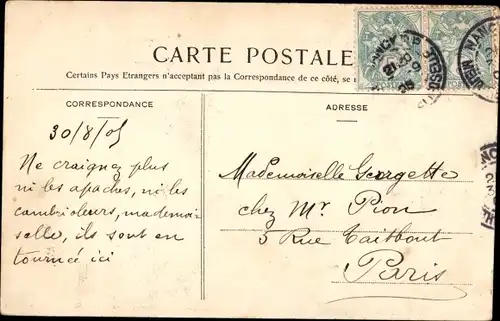 CARTE POSTALE
Certains Pays Etrangers n'acceptant pas la Correspondance de ce côté, se
CORRESPONDANCE
ADRESSE
30/8/05
Ne craignez plus
ni les apaches, ni les
cambrioleurs, mademoi-
selle, ils sont en
tournée ici
Mademoiselle Georgette
chez Mr Pion
5 Rue Taitbout
Paris